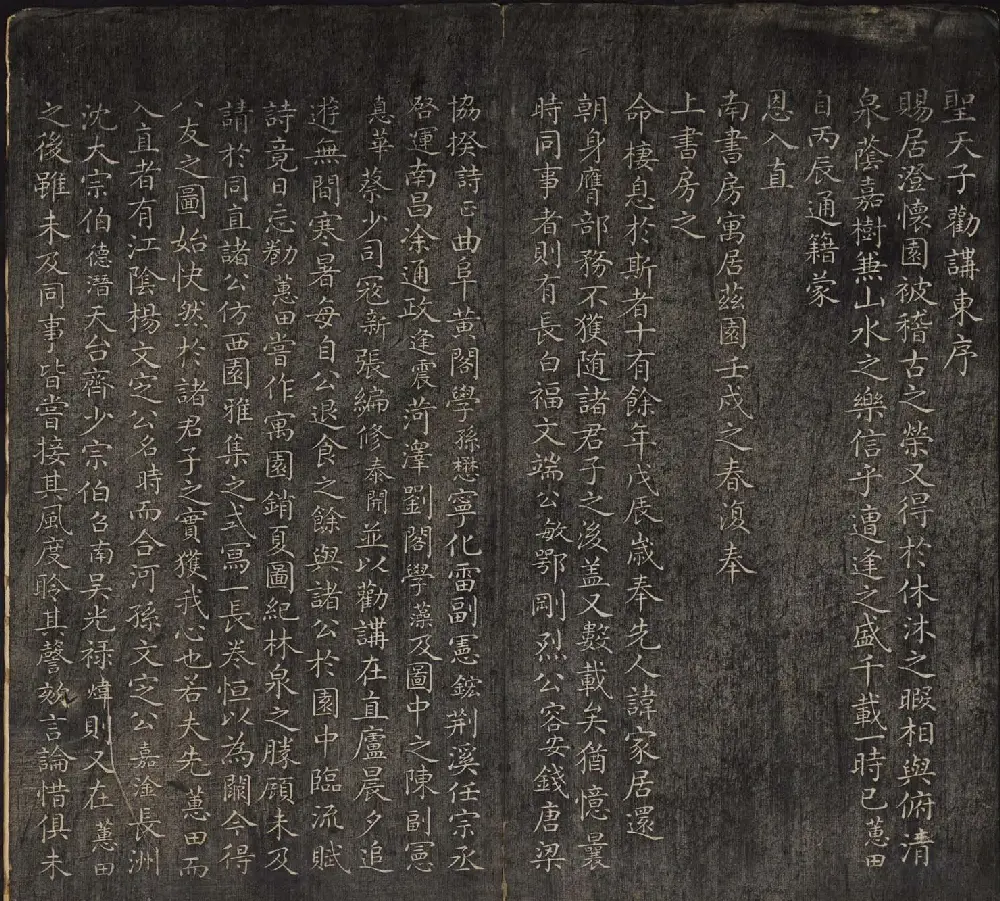 聖天子勸講東序
賜居澄懷園被稽古之榮又得於休沐之暇相與俯清
泉蔭嘉樹兼山水之樂信乎遭逢之盛千載一時已蕙田
自丙辰通籍蒙
恩入直
南書房寓居茲園壬戌之春復奉
上書房之
命棲息於斯者十有餘年戊辰歲奉先人諱家居還
朝身膺部務不獲随諸君子之後盖又數載矣猶憶曩
時同事者則有長白福文端公敏鄂剛烈公容安錢唐梁
協揆詩正曲阜黃閣學孫懋寧化雷副憲鋐荆溪任宗丞
啓運南昌余通政逢震菏澤劉閣學藻及圖中之陳副憲
悳華蔡少司寇新張編修泰開並以勸講在直廬晨夕追
遊無間寒暑每自公退食之餘與諸公於園中臨流賦
詩竟日忘勌蕙田嘗作寓園銷夏圖紀林泉之勝顧未及
請於同直諸公仿西園雅集之式寫一長卷恒以為闕今得
八友之圖始快然於諸君子之實獲我心也若夫先蕙田而
入直者有江陰楊文定公名時而合河孫文定公嘉淦長洲
沈大宗伯德潛天台齊少宗伯召南吴光禄煒則又在蕙田
之後雖未及同事皆嘗接其風度聆其謦欬言論惜俱未